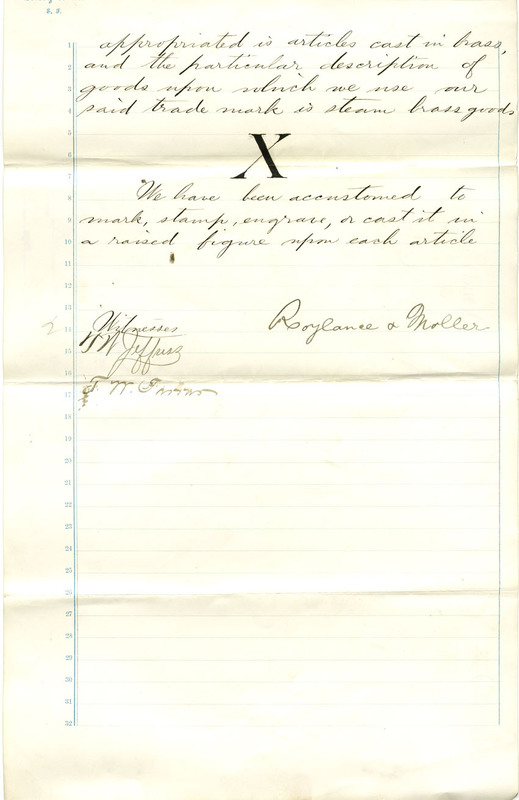 appropriated is articles cast in brass,
and the particular description of
goods upon which we use our
said trade mark is steam brass goods
X
We have been accustomed to
mark, stamp, engrave, or cast it in
a raised figure upon each article
Roylance & Moller
Witnesses
W Jeffers
W.
1
2
3
4
5
6
7
8
9
10
11
12
13
14
15
16
17
18
19
20
21
22
23
24
25
26
27
28
29
30
31
32